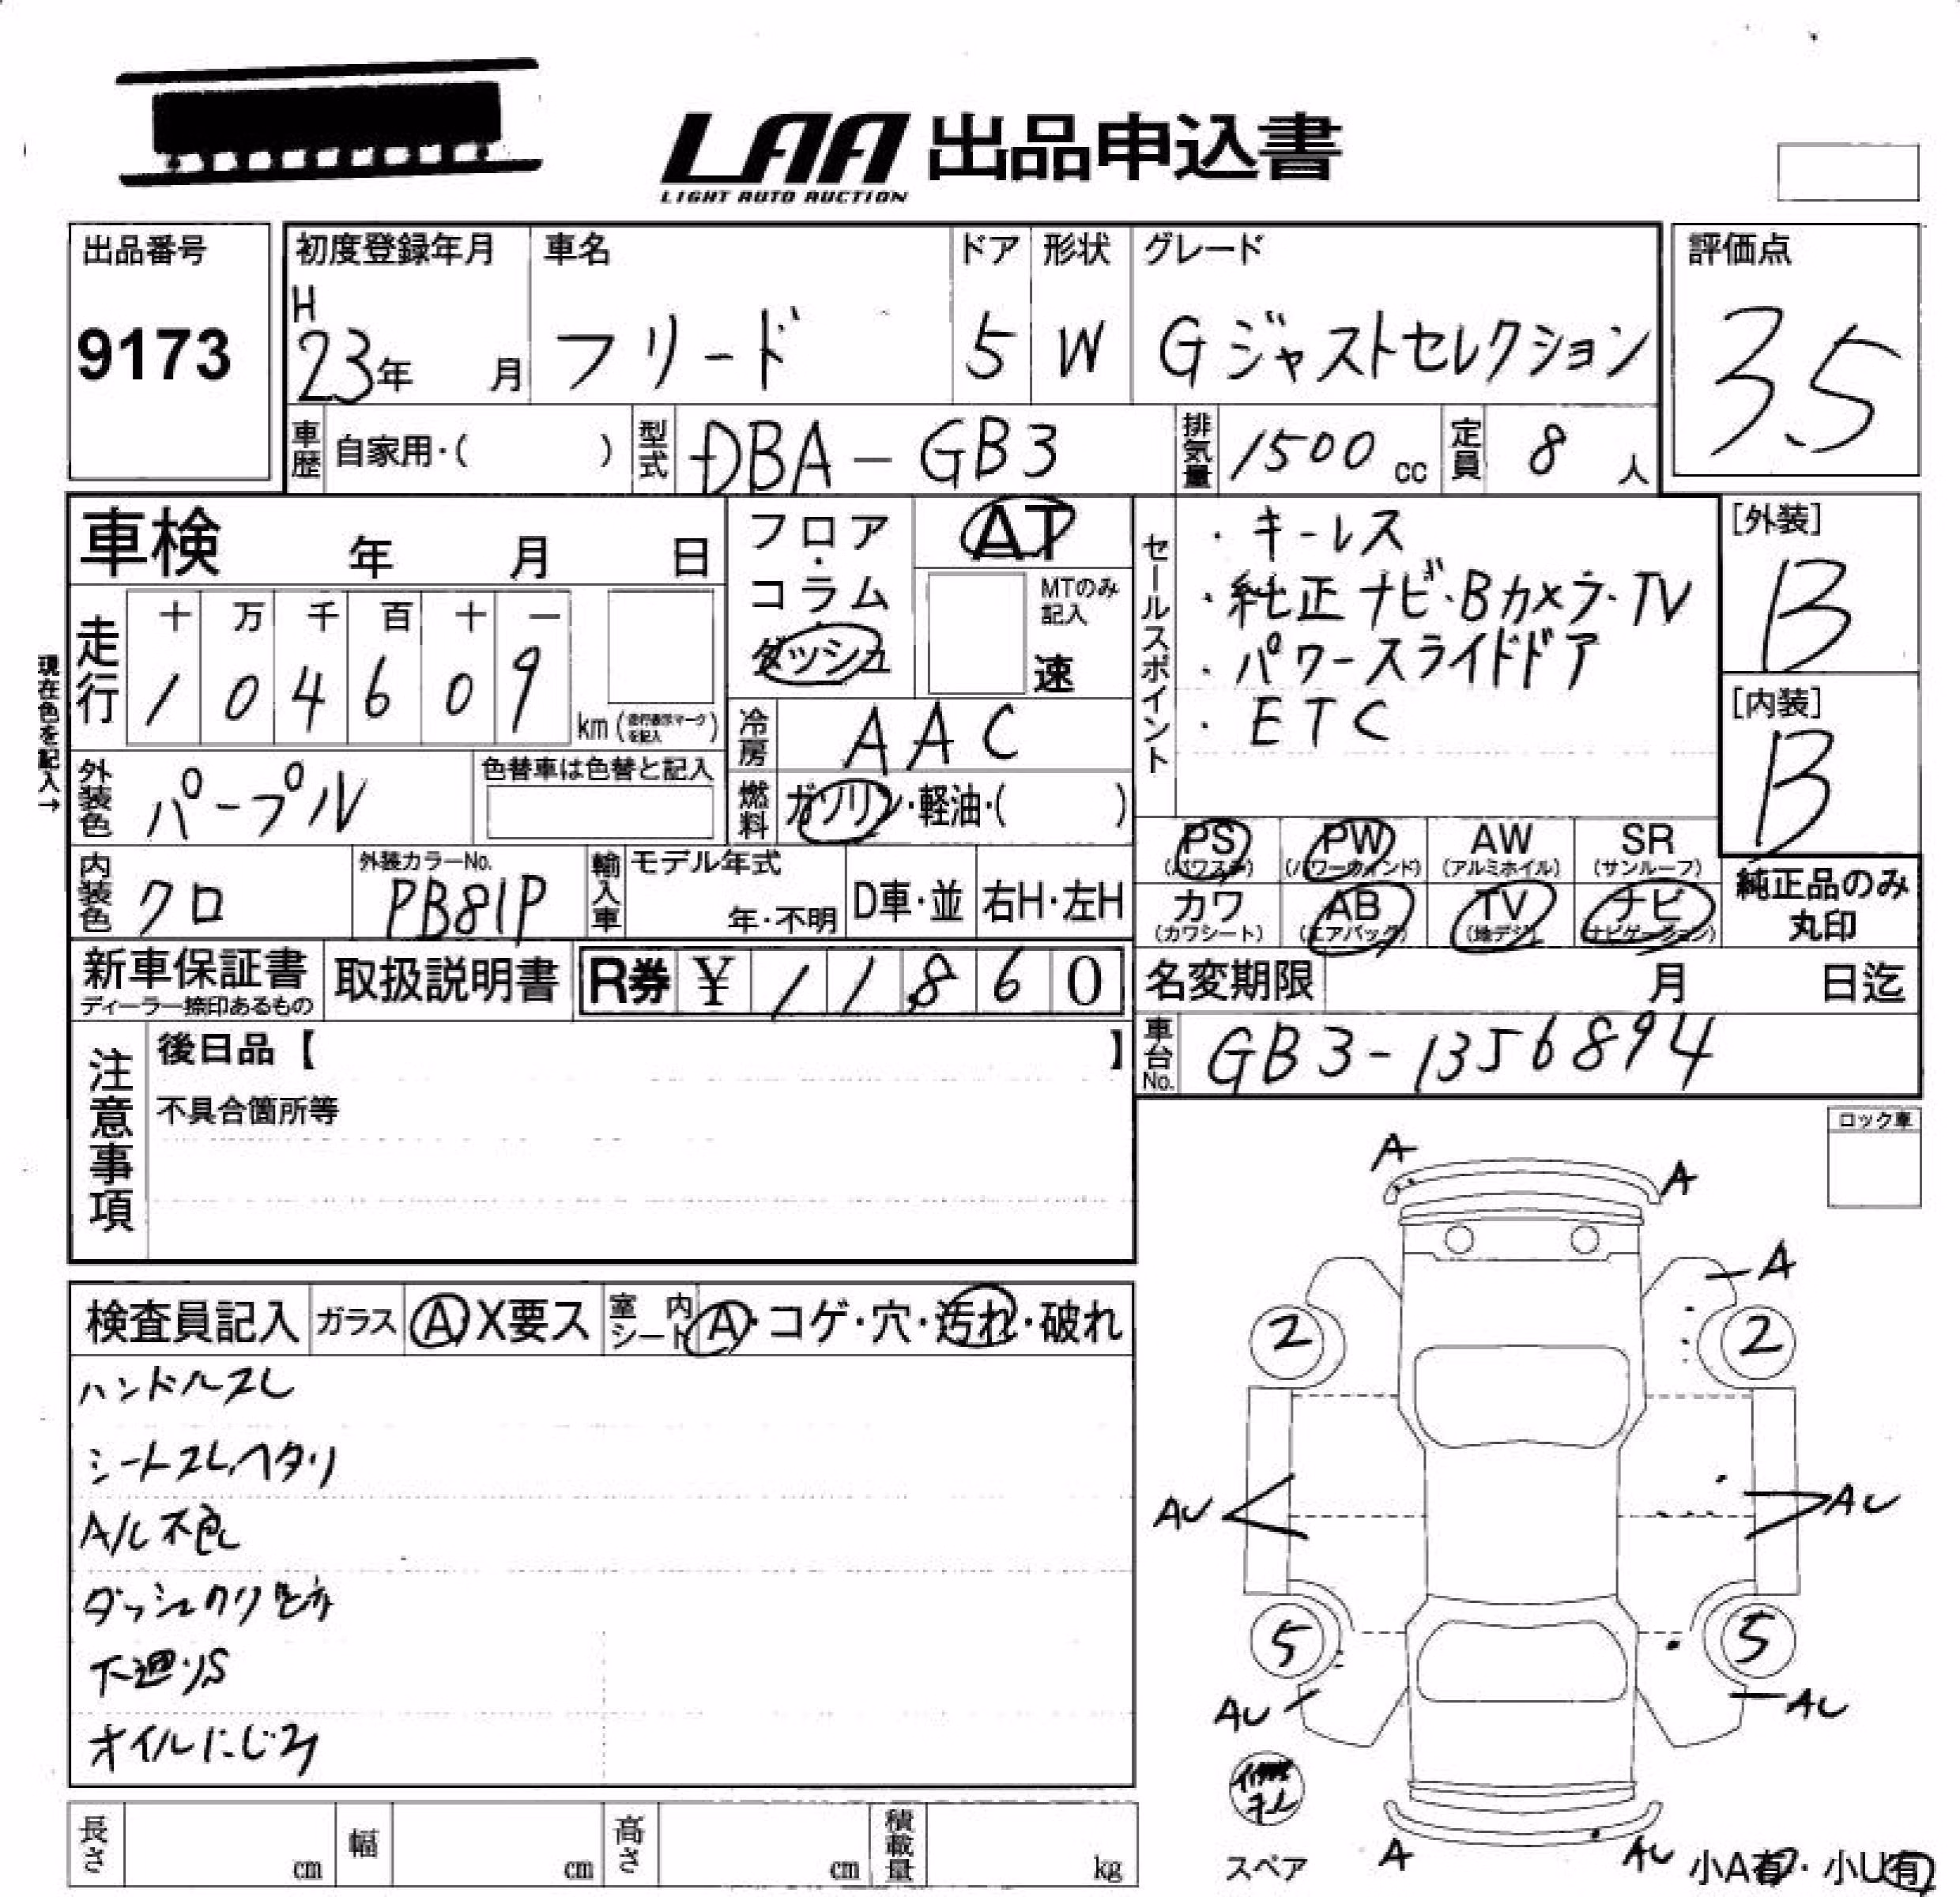 LAA 出品申込書
LIGHT AUTO AUCTION
出品番号
9173
初度登録年月
H
23年 月
車名
フリード
ドア
5
形状
W
グレード
Gジャストセレクション
評価点
3.5
車歴 自家用・( )
型式 DBA-GB3
排気量 1500 cc
定員 8 人
車検 年 月 日
フロア・コラム・ダッシュ
AT
MTのみ記入
速
セールスポイント
・キーレス
・純正ナビ・Bカメラ・TV
・パワースライドドア
・ETC
[外装]
B
[内装]
B
現在色を記入→
走行
十 万 千 百 十 一
1 0 4 6 0 9
km(走行表示マークを記入)
冷房 AAC
燃料 ガソリン・軽油・( )
外装色 パープル
色替車は色替と記入
PS (パワステ)
PW (パワーウインド)
AW (アルミホイル)
SR (サンルーフ)
カワ (カワシート)
AB (エアバッグ)
TV (地デジ)
ナビ (ナビゲーション)
純正品のみ丸印
内装色 クロ
外装カラーNo.
PB81P
輸入車
モデル年式
年・不明
D車・並
右H・左H
新車保証書
ディーラー捺印あるもの
取扱説明書
R券 ¥ 11860
名変期限 月 日迄
車台No. GB3-1356894
注意事項
後日品【 】
不具合箇所等
ロック車
検査員記入
ガラス A X要ス
室内シート A・コゲ・穴・汚れ・破れ
ハンドルスレ
シートスレ、ヘタリ
下廻りS
オイルにじみ
A
A
A
2
2
AU
AU
5
5
AU
AU
A
AU
スペア
小A有・小U有
長さ cm
幅 cm
高さ cm
積載量 kg